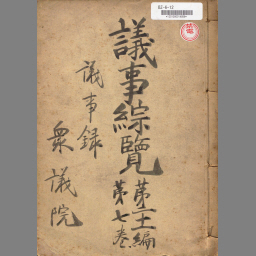 議事綜覽
第二編
第七巻
議事録
衆議院